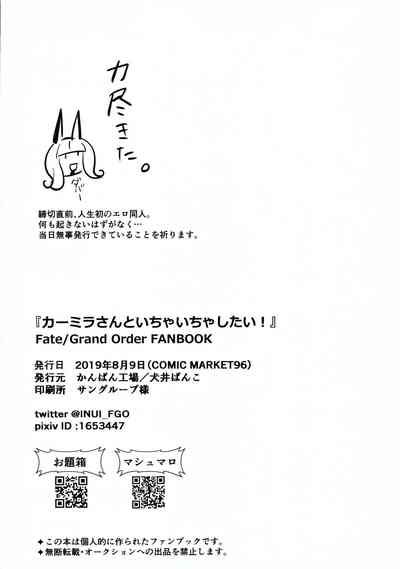 力尽きた。
ダバー
締切直前、人生初のエロ同人。
何も起きないはずがなく…
当日無事発行できていることを祈ります。
『カーミラさんといちゃいちゃしたい！』
Fate/Grand Order FANBOOK
発行日 2019年8月9日（COMIC MARKET96）
発行元 かんぱん工場／犬井ぱんこ
印刷所 サングループ様
twitter @INUI_FGO
pixiv ID :1653447
お題箱
マシュマロ
✦この本は個人的に作られたファンブックです。
✦無断転載・オークションへの出品を禁止します。